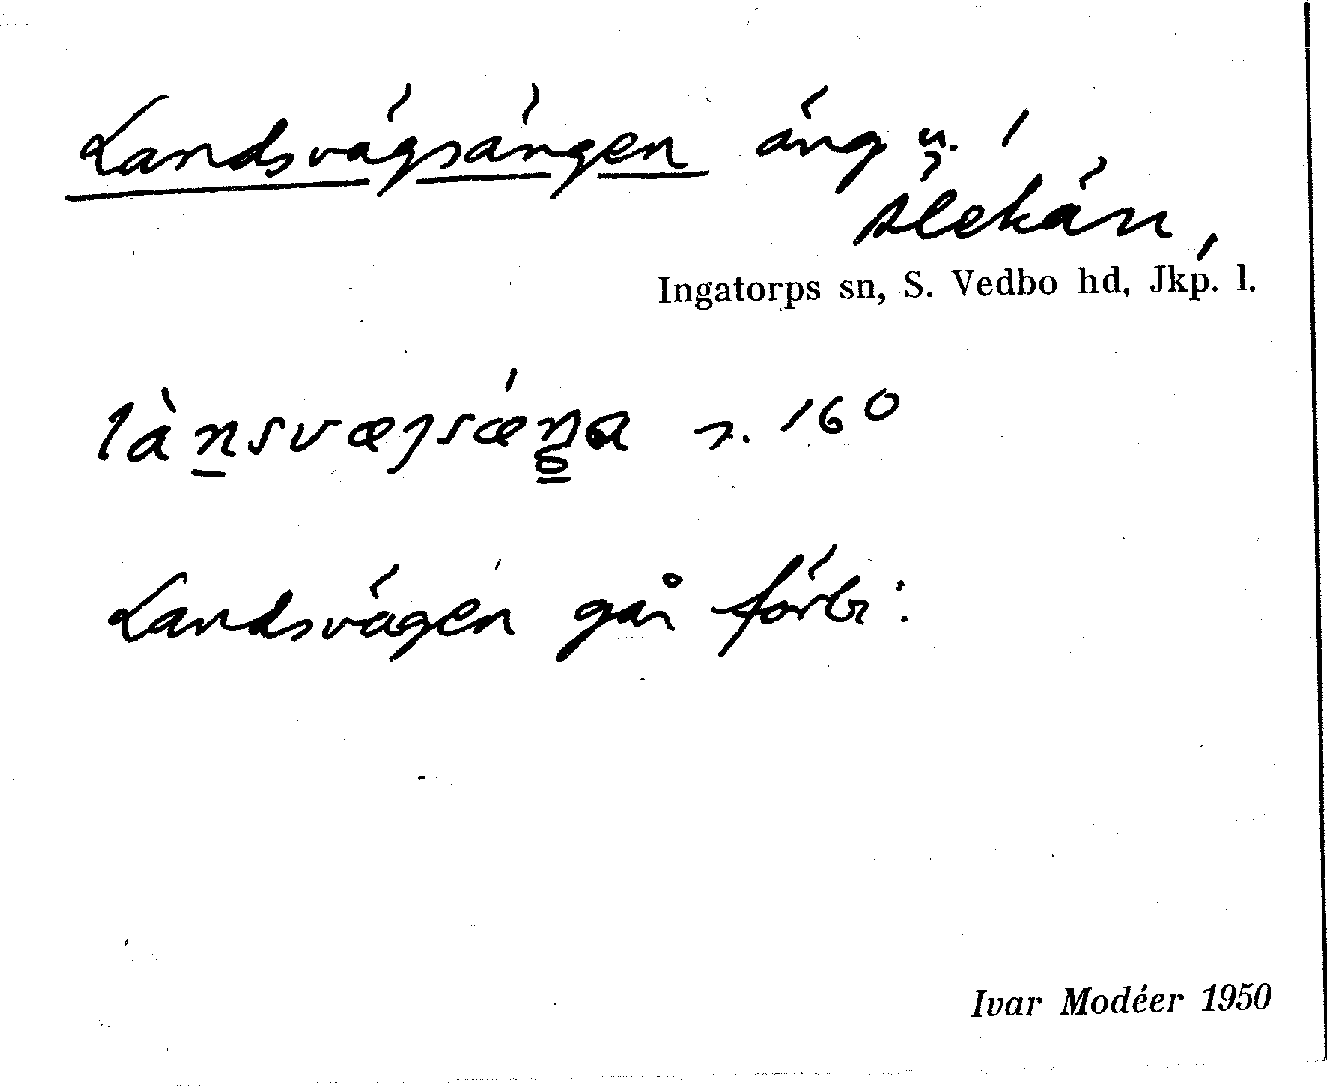 Landsvägsängen äng u.
Slekärr,
Ingatorps sn, S. Vedbo hd, Jkp. l.
160
Landsvägen går förbi.
Ivar Modéer 1950